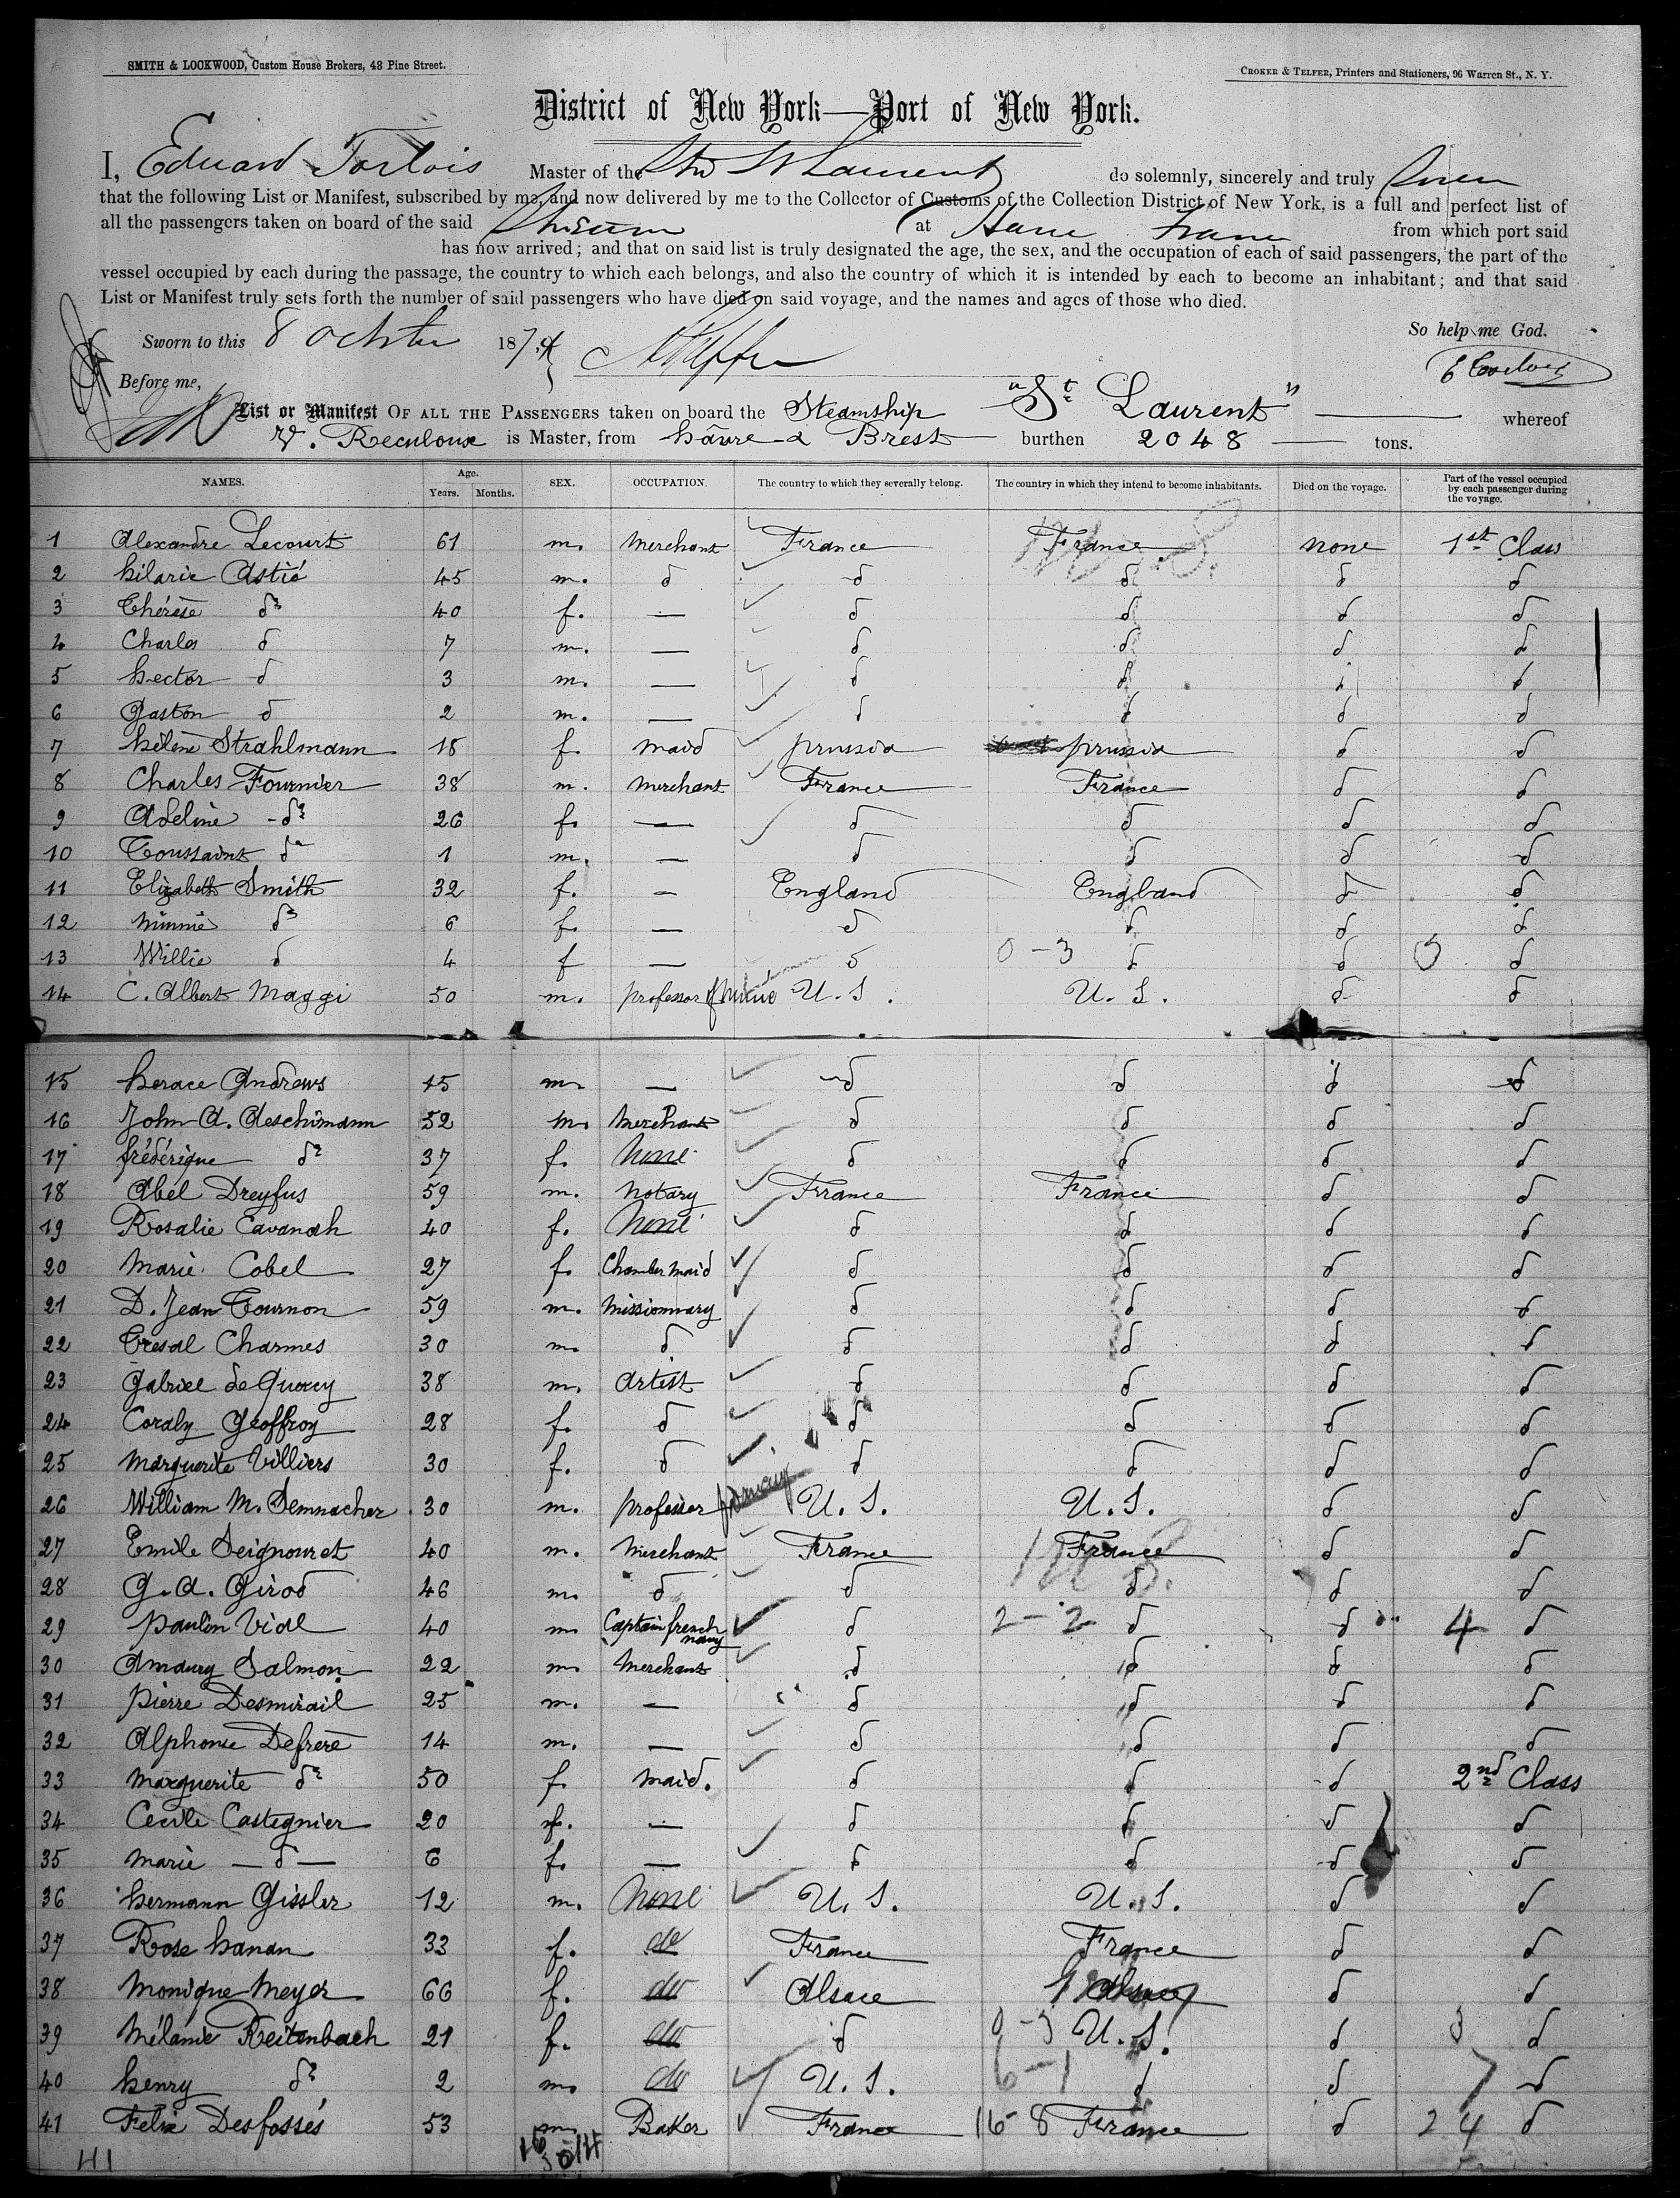 SMITH & LOCKWOOD, Custom House Brokers, 43 Pine Street.
CROKER & TELFER, Printers and Stationers, 96 Warren St., N. Y.
District of New York—Port of New York.
I, Eduard Master of the Str St Laurent do solemnly, sincerely and truly Swear
that the following List or Manifest, subscribed by me, and now delivered by me to the Collector of Customs of the Collection District of New York, is a full and perfect list of
all the passengers taken on board of the said at Havre France from which port said
has now arrived; and that on said list is truly designated the age, the sex, and the occupation of each of said passengers, the part of the
vessel occupied by each during the passage, the country to which each belongs, and also the country of which it is intended by each to become an inhabitant; and that said
List or Manifest truly sets forth the number of said passengers who have died on said voyage, and the names and ages of those who died.
So help me God.
Sworn to this 8 187
Before me,
List or Manifest OF ALL THE PASSENGERS taken on board the Steamship "St Laurent" whereof
Reculoux is Master, from hâvre & Brest burthen 2048 tons.
NAMES. Age. Years. Months. SEX. OCCUPATION. The country to which they severally belong. The country in which they intend to become inhabitants. Died on the voyage. Part of the vessel occupied by each passenger during the voyage.
1 Alexandre Lecourt 61 m. Merchant France France none 1st Class
2 hilarie Astié 45 m. d d d d d
3 Thérèse do 40 f. — d d d d
4 Charles d 7 m. — d d d d
5 hector d 3 m. — d d d d
6 Gaston d 2 m. — d d d d
7 hélène Strahlmann 18 f. maid prussia prussia d d
8 Charles Fournier 38 m. merchant France France d d
9 Adeline do 26 f. — d d d d
10 Toussaint do 1 m. — d d d d
11 Elizabeth Smith 32 f. — England England d d
12 Minnie do 6 f. — d d d d
13 Willie d 4 f — d 0-3 d d d
14 C. Albert Maggi 50 m. professor of Music U.S. U.S. d d
15 horace Andrews 15 m. — d d d d
16 John A. Aeschimann 52 m. Merchant d d d d
17 frédérique do 37 f. None d d d d
18 Abel Dreyfus 59 m. notary France France d d
19 Rosalie Cavanah 40 f. None d d d d
20 Marie Cobel 27 f. Chamber maid d d d d
21 D. Jean Tournon 59 m. Missionnary d d d d
22 Tresal Charmes 30 m. d d d d d
23 Gabriel de Quercy 38 m. Artist d d d d
24 Coraly Geoffroy 28 f. d d d d d
25 Marguerite Villiers 30 f. d d d d d
26 William M. Semnacher 30 m. professor U.S. U.S. d d
27 Emile Seignouret 40 m. Merchant France France d d
28 G. A. Girod 46 m. d d d d d
29 paulin Vial 40 m. Captain french navy d 2-2 d d 4 d
30 Amaury Salmon 22 m. Merchant d d d d
31 pierre Desmirail 25 m. — d d d d
32 Alphonse Defrere 14 m. — d d d d
33 Marguerite do 50 f. maid. d d d 2nd Class
34 Cecile Castegnier 20 f. — d d d d
35 Marie — d — 6 f. — d d d d
36 hermann Gissler 12 m. None U.S. U.S. d d
37 Rose hanan 33 f. do France France d d
38 Monique Meyer 66 f. do Alsace Alsace d d
39 Mélanie Reitenbach 21 f. do d U.S. d d
40 henry do 2 m. do U.S. 6-1 d d d
41 Felix Desfossés 53 m. Baker France 16-8 France d 24 d
41